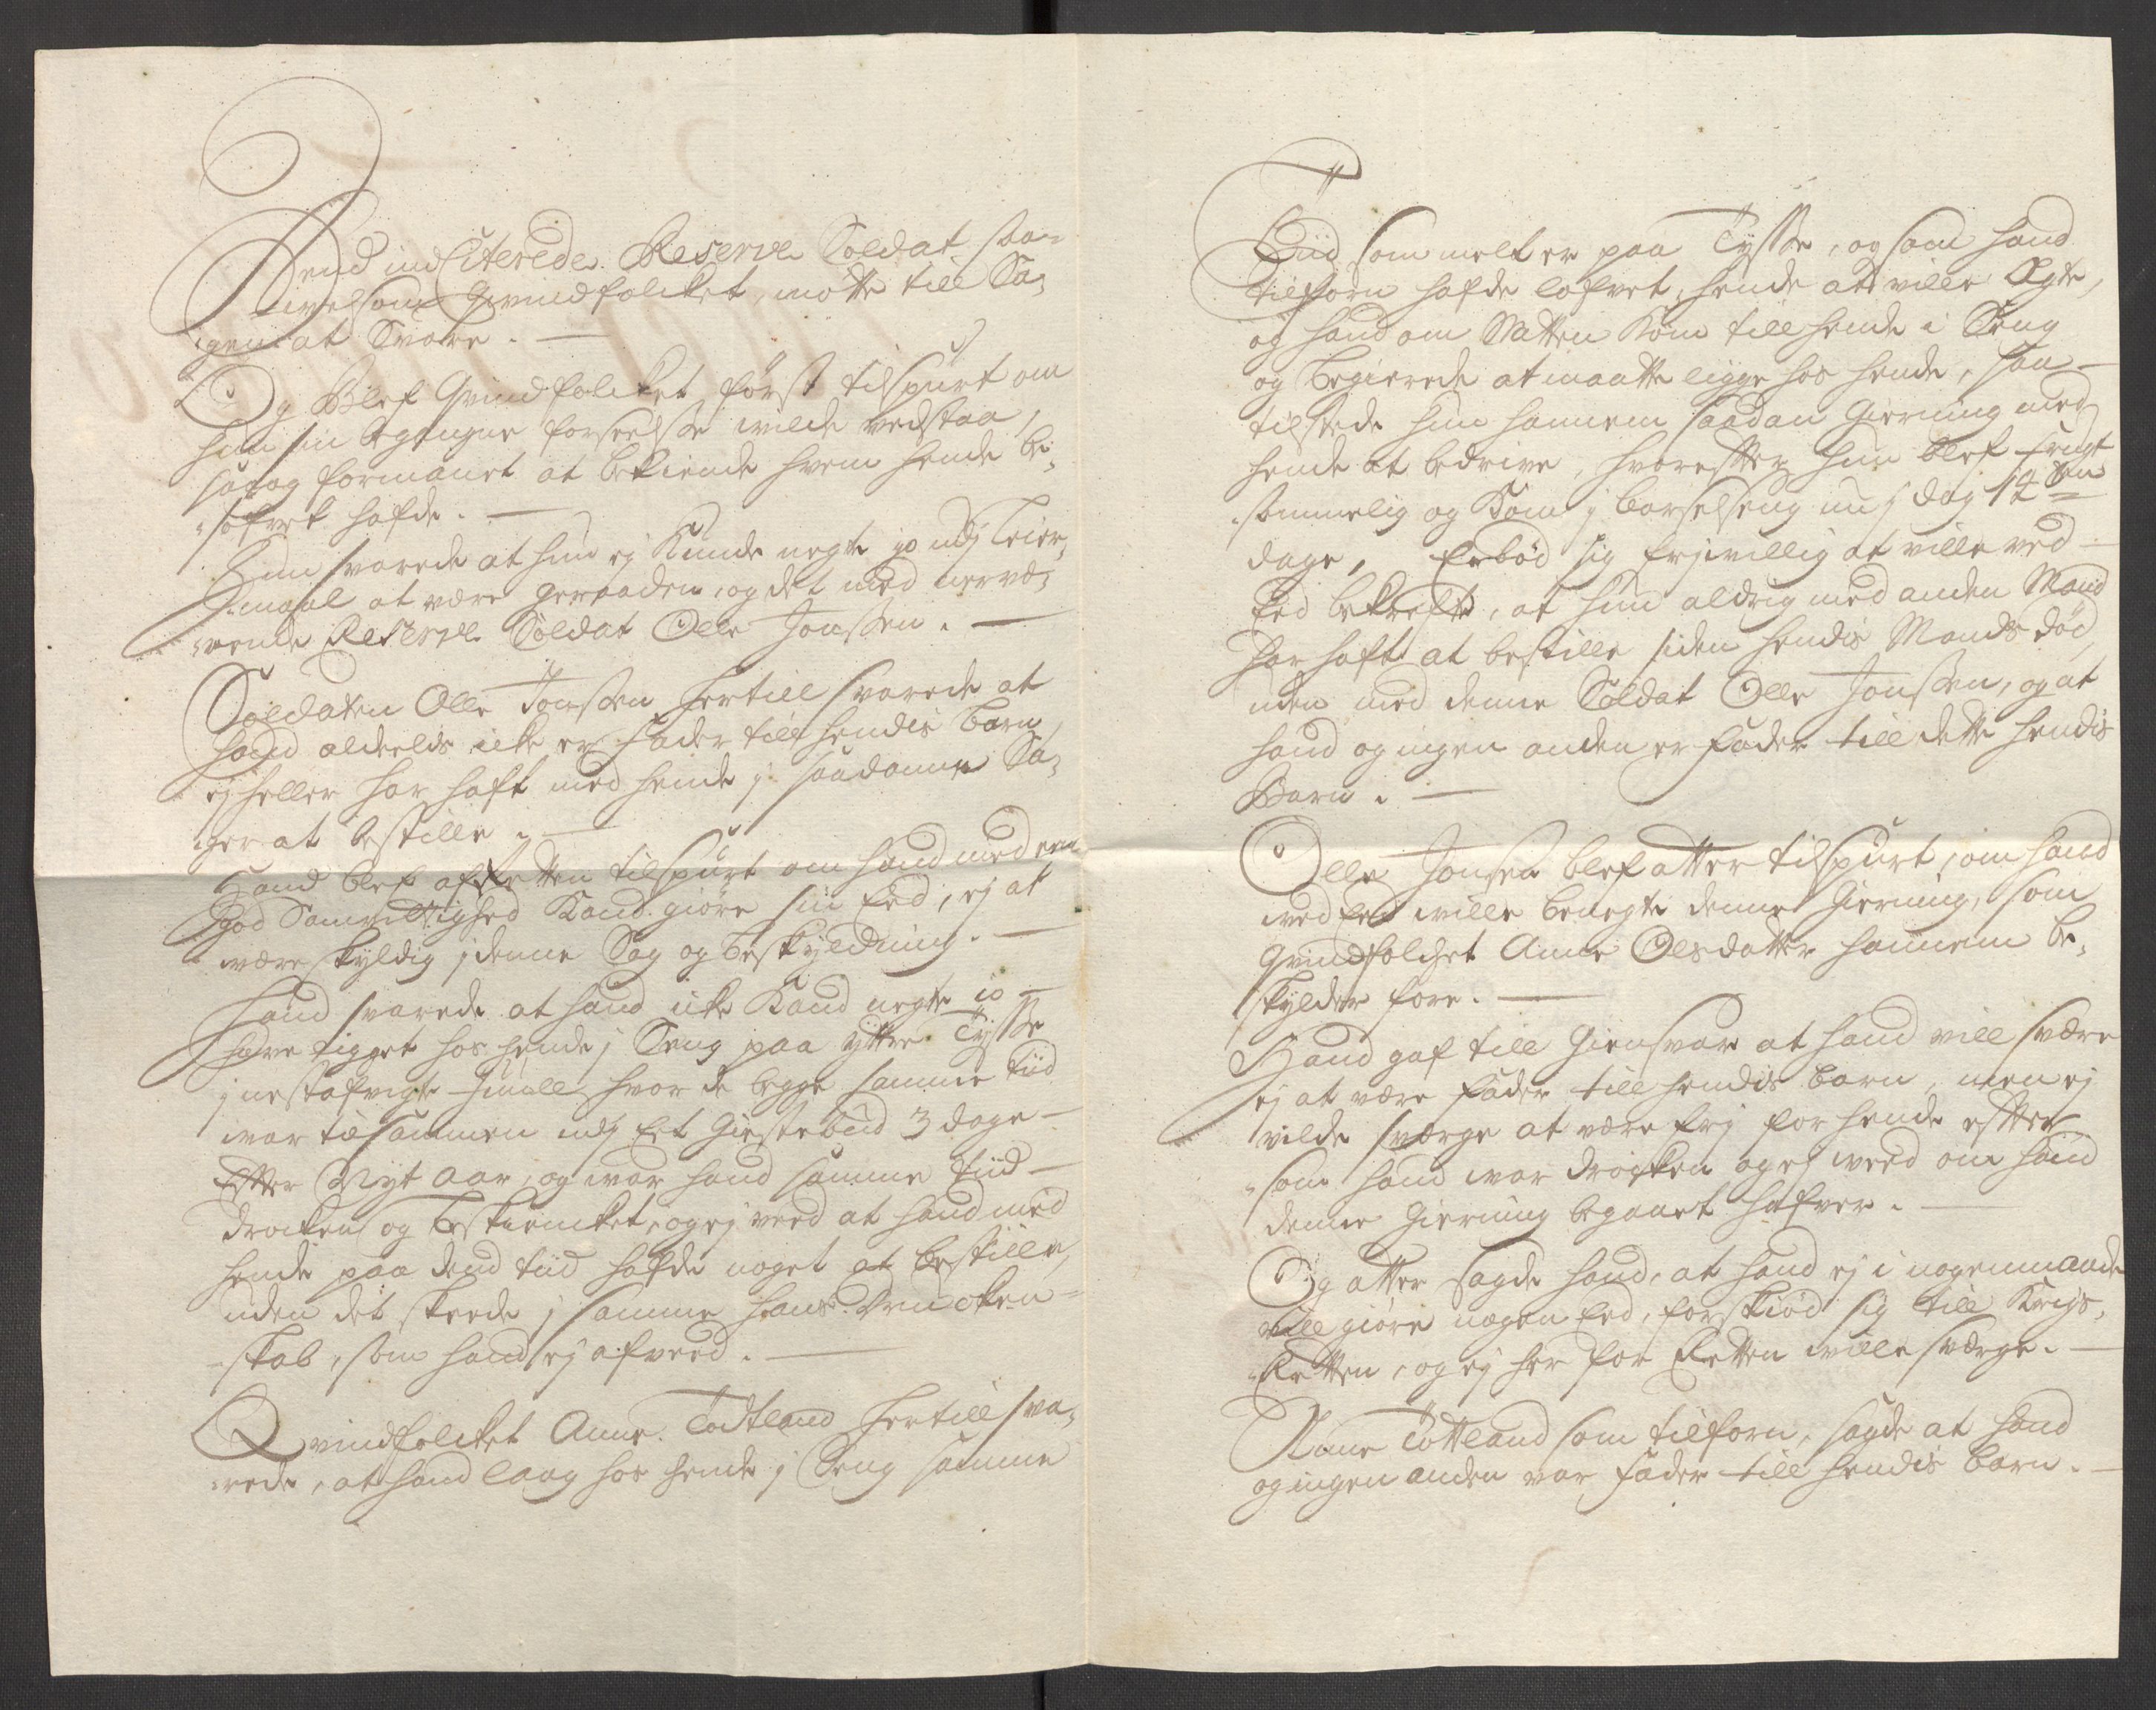 Dend ind Citerede Reserve Soldat saa¬
velsom Qvindfolcket, møtte till Sa¬
gen at Svare.
Og Blef Qvindfolcket först tilspurt om
hun sin begangne forseelse wilde vedstaa,
saa og formanet at bekiende hvem hende be¬
sofvet hafde.
Hun svarede at hun ej Kunde negte jo udj Leier¬
maal at være geraaden, og det med nervæ¬
rende Reserve Soldat Olle Jonssen.
Soldaten Olle Jonssen hertill svarede at
hand aldeelis icke er fader till hendis barn,
ej heller har haft med hende j saadanne Sa¬
ger at bestille.
Hand blef af Retten tilspurt om hand med een
god Samvittighed Kand giøre sin Eed, ej at
være skyldig j denne Sag og beskyldning.
Hand svarede at hand icke Kand negte jo
have ligget hos hende j Seng paa Yttre Tysse
j nest afvigte Juull, hvor de begge samme tiid
war tilsammen udj Et Giestebud 3 dage
Etter Nyt aar, og war hand samme tiid
drocken og beskiencket, og ej veed at hand med
hende paa dend tiid hafde noget at bestille,
uden det skeede j samme hans Drucken¬
skab, som hand ej af veed.
Qvindfolcket Anne Todtland hertill sva¬
rede, at hand laag hos hende j Seng samme
Tiid som melt er paa Tysse, og som hand
tilforn hafde lofvet hende at ville Ægte,
og hand om Natten Kom till hende i Seng
og begierede at maatte ligge hos hende, saa
tilstede hun hannem saadan gierning med
hende at bedrive, hvorefter hun blef frugt
sommelig og Kom j barselseng nu j dag 14 ten
dage, Erbød sig frjwillig at ville ved
Eed bekrefte, at hun aldrig med anden Mand
har haft at bestille siden hendis Mands død,
uden med denne Soldat Olle Jonssen, og at
hand og ingen anden er fader till dette hendis
Barn.
Olle Jonsen blef atter tilspurt, om hand
med Eed wille benegte denne Gierning, som
Qvindfolchet Anne Olsdatter hannem be¬
skylder fore.
Hand gaf till Giensvar at hand vill svære
ej at være fader till hendis barn, men ej
vilde sværge at være frj for hende efter
som hand war drocken og ej weed om hand
denne Gierning begaaet hafver.
Og atter sagde hand, at hand ej i nogenmaade
vill giøre nogen Eed, forskiød sig till Krigs¬
Retten, og ej her for Retten wille sværge.
Anne Tottland som tilforn, sagde at hand
og ingen anden var fader till hendis barn.